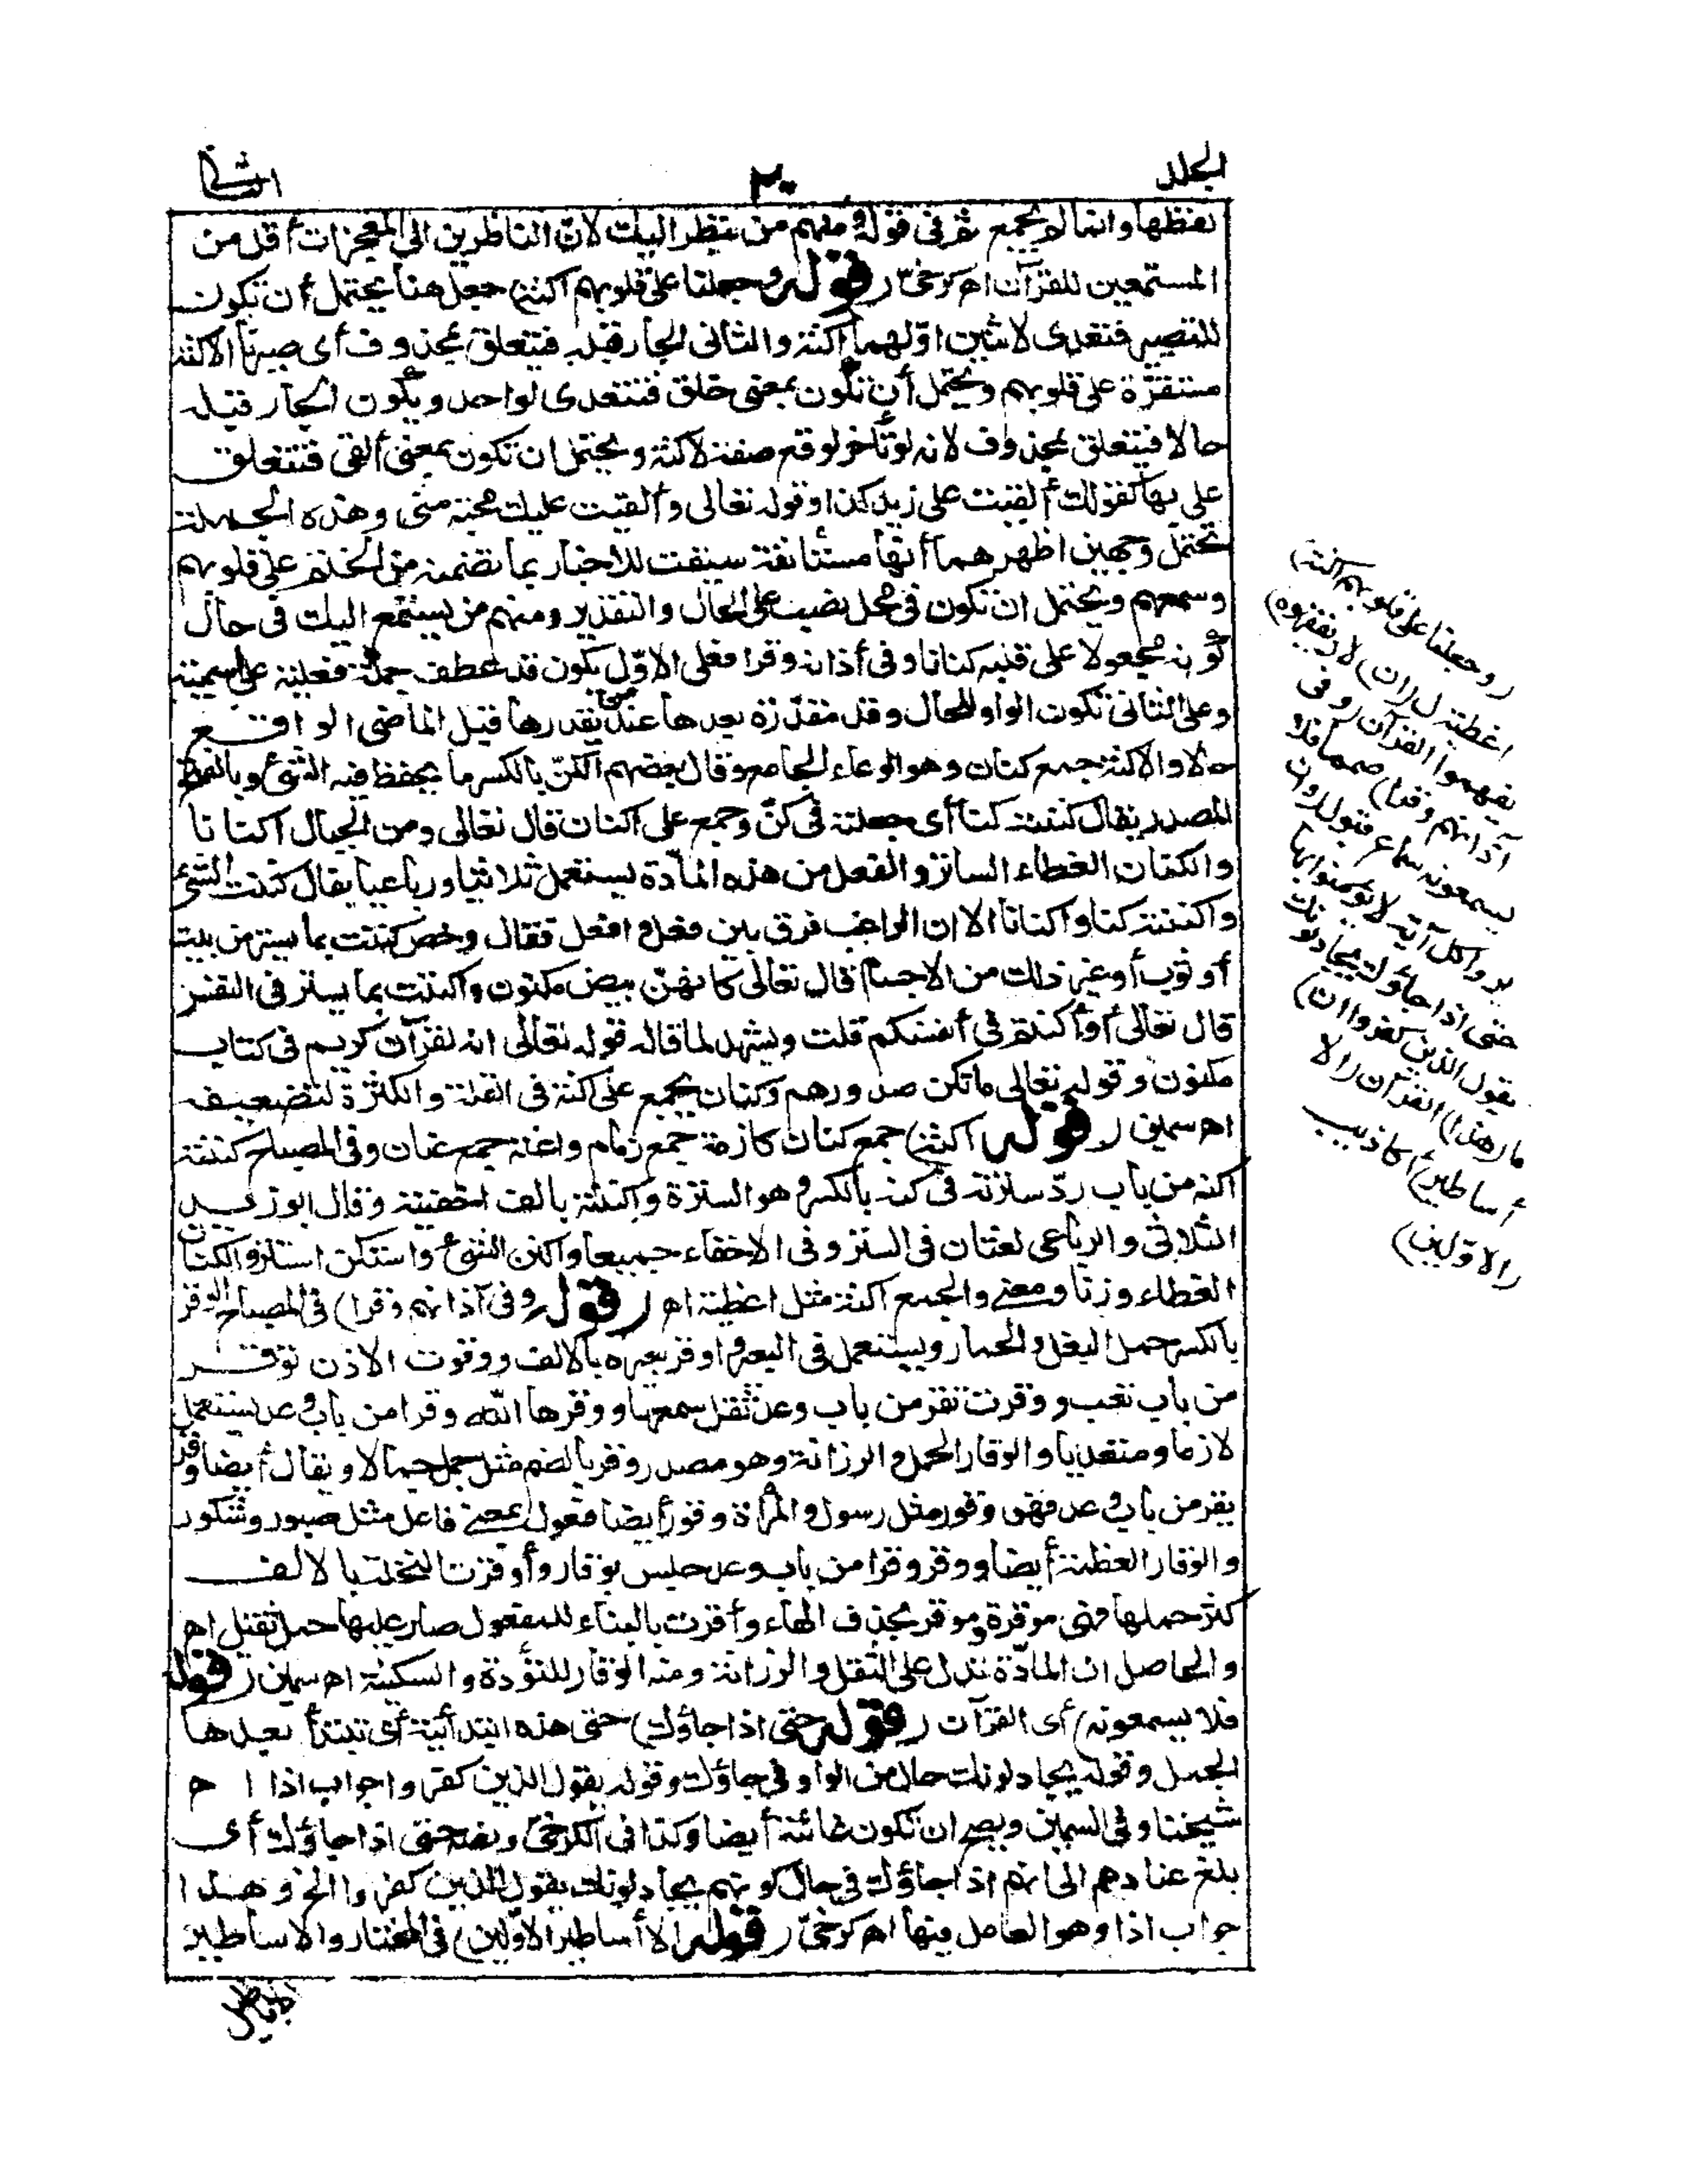 الجلد
٢٠
الثانى
لفظها وانما لم يجمع ثم فى قوله ومنهم من ينظر اليك لان الناظرين الى المعجزات أقل من
المستمعين للقرآن اه كرخى (قوله وجعلنا على قلوبهم أكنة) جعل هنا يحتمل أن تكون
للتصيير فتتعدى لاثنين اولهما أكنة والثانى الجار قبله فيتعلق بمحذوف أى صيرنا الاكنة
مستقرة على قلوبهم ويحتمل أن تكون بمعنى خلق فتتعدى لواحد ويكون الجار قبله
حالا فيتعلق بمحذوف لانه لو تأخر لوقع صفة لاكنة ويحتمل ان تكون بمعنى ألقى فتتعلق
على بها كقولك ألقيت على زيد كذا وقوله تعالى وألقيت عليك محبة منى وهذه الجملة
تحتمل وجهين اظهرهما أنها مستأنفة سيقت للاخبار بما تضمنه من الختم على قلوبهم
وسمعهم ويحتمل ان تكون فى محل نصب على الحال والتقدير ومنهم من يستمع اليك فى حال
كونه مجعولا على قلبه كنانا وفى أذانه وقرا فعلى الاول يكون قد عطف جملة فعلية على اسمية
وعلى الثانى تكون الواو للحال وقد مقدرة بعدها عند من يقدرها قبل الماضى الواقع
حالا والاكنة جمع كنان وهو الوعاء الجامع وقال بعضهم الكن بالكسر ما يحفظ فيه الشئ وبالفتح
المصدر يقال كننته كنا أى جعلته فى كن وجمع على اكنان قال تعالى ومن الجبال اكنانا
والكنان الغطاء الساتر والفعل من هذه المادة يستعمل ثلاثيا ورباعيا يقال كننت الشئ
واكننته كنا واكنانا الا ان الراغب فرق بين فعل وافعل فقال وخص كننت بما يستر من بيت
أو ثوب أو غير ذلك من الاجسام قال تعالى كأنهن بيض مكنون واكننت بما يستر فى النفس
قال تعالى أو أكننتم فى أنفسكم قلت ويشهد لما قاله قوله تعالى انه لقرآن كريم فى كتاب
مكنون وقوله تعالى ما تكن صدورهم وكنان يجمع على أكنة فى القلة والكثرة لتضعيفه
اه سمين (قوله أكنة) جمع كنان كازمة جمع زمام واعنة جمع عنان وفى المصباح كننته
اكنه من باب رد سترته فى كنه بالكسر وهو السترة وأكننته بالف اخفيته وقال ابو زيد
الثلاثى والرباعى لغتان فى الستر وفى الاخفاء جميعا واكتن الشئ واستكن استتر والكنان
الغطاء وزنا ومعنى والجمع أكنة مثل اغطية اه (قوله وفى آذانهم وقرا) فى المصباح الوقر
بالكسر حمل البغل والحمار ويستعمل فى البعير واوقر بعيره بالالف ووقرت الاذن توقر
من باب تعب ووقرت تقر من باب وعد ثقل سمعها ووقرها الله وقرا من باب وعد يستعمل
لازما ومتعديا والوقار الحلم والرزانة وهو مصدر وقر بالضم مثل جمل جمالا ويقال أيضا وقر
يقر من باب وعد فهو وقور مثل رسول والمرأة وقور أيضا فعول بمعنى فاعل مثل صبور وشكور
والوقار العظمة أيضا ووقر وقرا من باب وعد جلس بوقار وأوقرت النخلة بالالف
كثر حملها فهى موقرة وموقر بحذف الهاء وأوقرت بالبناء للمفعول صار عليها حمل ثقيل اه
والحاصل ان المادة تدل على الثقل والرزانة ومنه الوقار للتؤدة والسكينة اه سمين (قوله
فلا يسمعونه) أى القرآن (قوله حتى اذا جاؤك) حتى هذه ابتدائية أى تبتدأ بعدها
الجمل وقوله يجادلونك حال من الواو فى جاؤك وقوله يقول الذين كفروا جواب اذا اه
شيخنا وفى السمين ويصح ان تكون غائية أيضا وكذا فى الكرخى ونصه حتى اذا جاؤك أى
بلغ عنادهم الى انهم اذا جاؤك فى حال كونهم يجادلونك يقول الذين كفروا الخ وهذا
جواب اذا وهو العامل فيها اه كرخى (قوله الا أساطير الاولين) فى المختار والاساطير
(وجعلنا على قلوبهم أكنة)
اغطية ل(ان) لا (يفقهوه)
يفهموا القرآن (وفى
آذانهم وقرا) صمما فلا
يسمعونه سماع قبول (وان
يروا كل آية لا يؤمنوا بها
حتى اذا جاؤك يجادلونك
يقول الذين كفروا ان)
ما (هذا) القرآن (الا
أساطير) أكاذيب
(الاولين)